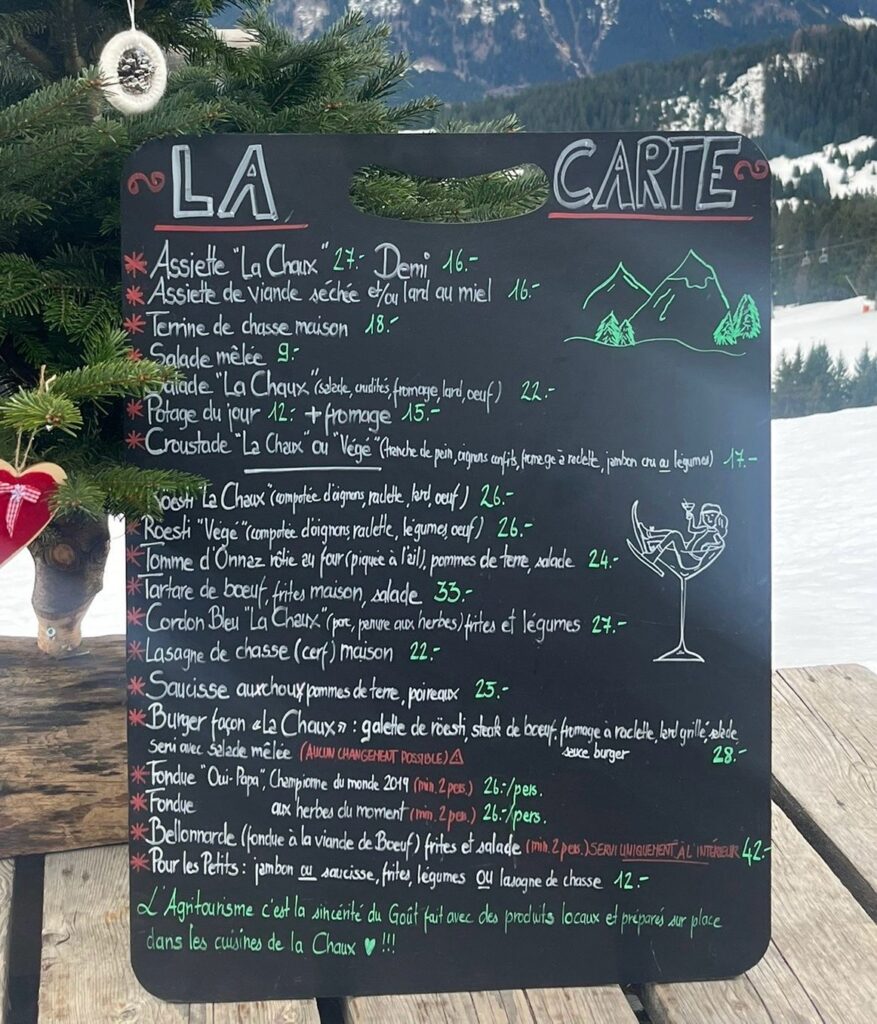 LA CARTE
Assiette "La Chaux" 27.- Demi 16.-
Assiette de viande séchée et/ou lard au miel 16.-
Terrine de chasse maison 18.-
Salade mêlée 9.-
Salade "La Chaux" (salade, crudités, fromage, lard, oeuf) 22.-
Potage du jour 12.- + fromage 15.-
Croustade "La Chaux" ou "Végé" (tranche de pain, oignons confits, fromage à raclette, jambon cru ou légumes) 17.-
Roesti "La Chaux" (compotée d'oignons, raclette, lard, oeuf) 26.-
Roesti "Végé" (compotée d'oignons raclette, légumes, oeuf) 26.-
Tomme d'Onnaz rôtie au four (piquée à l'ail), pommes de terre, salade 24.-
Tartare de boeuf, frites maison, salade 33.-
Cordon Bleu "La Chaux" (porc, panure aux herbes) frites et légumes 27.-
Lasagne de chasse (cerf) maison 22.-
Saucisse aux choux pommes de terre, poireaux 25.-
Burger façon «La Chaux» : galette de röesti, steak de boeuf, fromage à raclette, lard grillé, salade,
sauce burger
Servi avec salade mêlée (AUCUN CHANGEMENT POSSIBLE) ⚠ 28.-
Fondue "Oui-Papa", Championne du monde 2019 (min. 2 pers.) 26.-/pers.
Fondue aux herbes du moment (min. 2 pers.) 26.-/pers.
Bellonnarde (fondue à la viande de Boeuf) frites et salade (min. 2 pers.) SERVI UNIQUEMENT À L'INTÉRIEUR 42.-
Pour les Petits : jambon ou saucisse, frites, légumes OU lasagne de chasse 12.-
L'Agritourisme c'est la sincérité du Goût fait avec des produits locaux et préparés sur place
dans les cuisines de la Chaux ♥ !!!